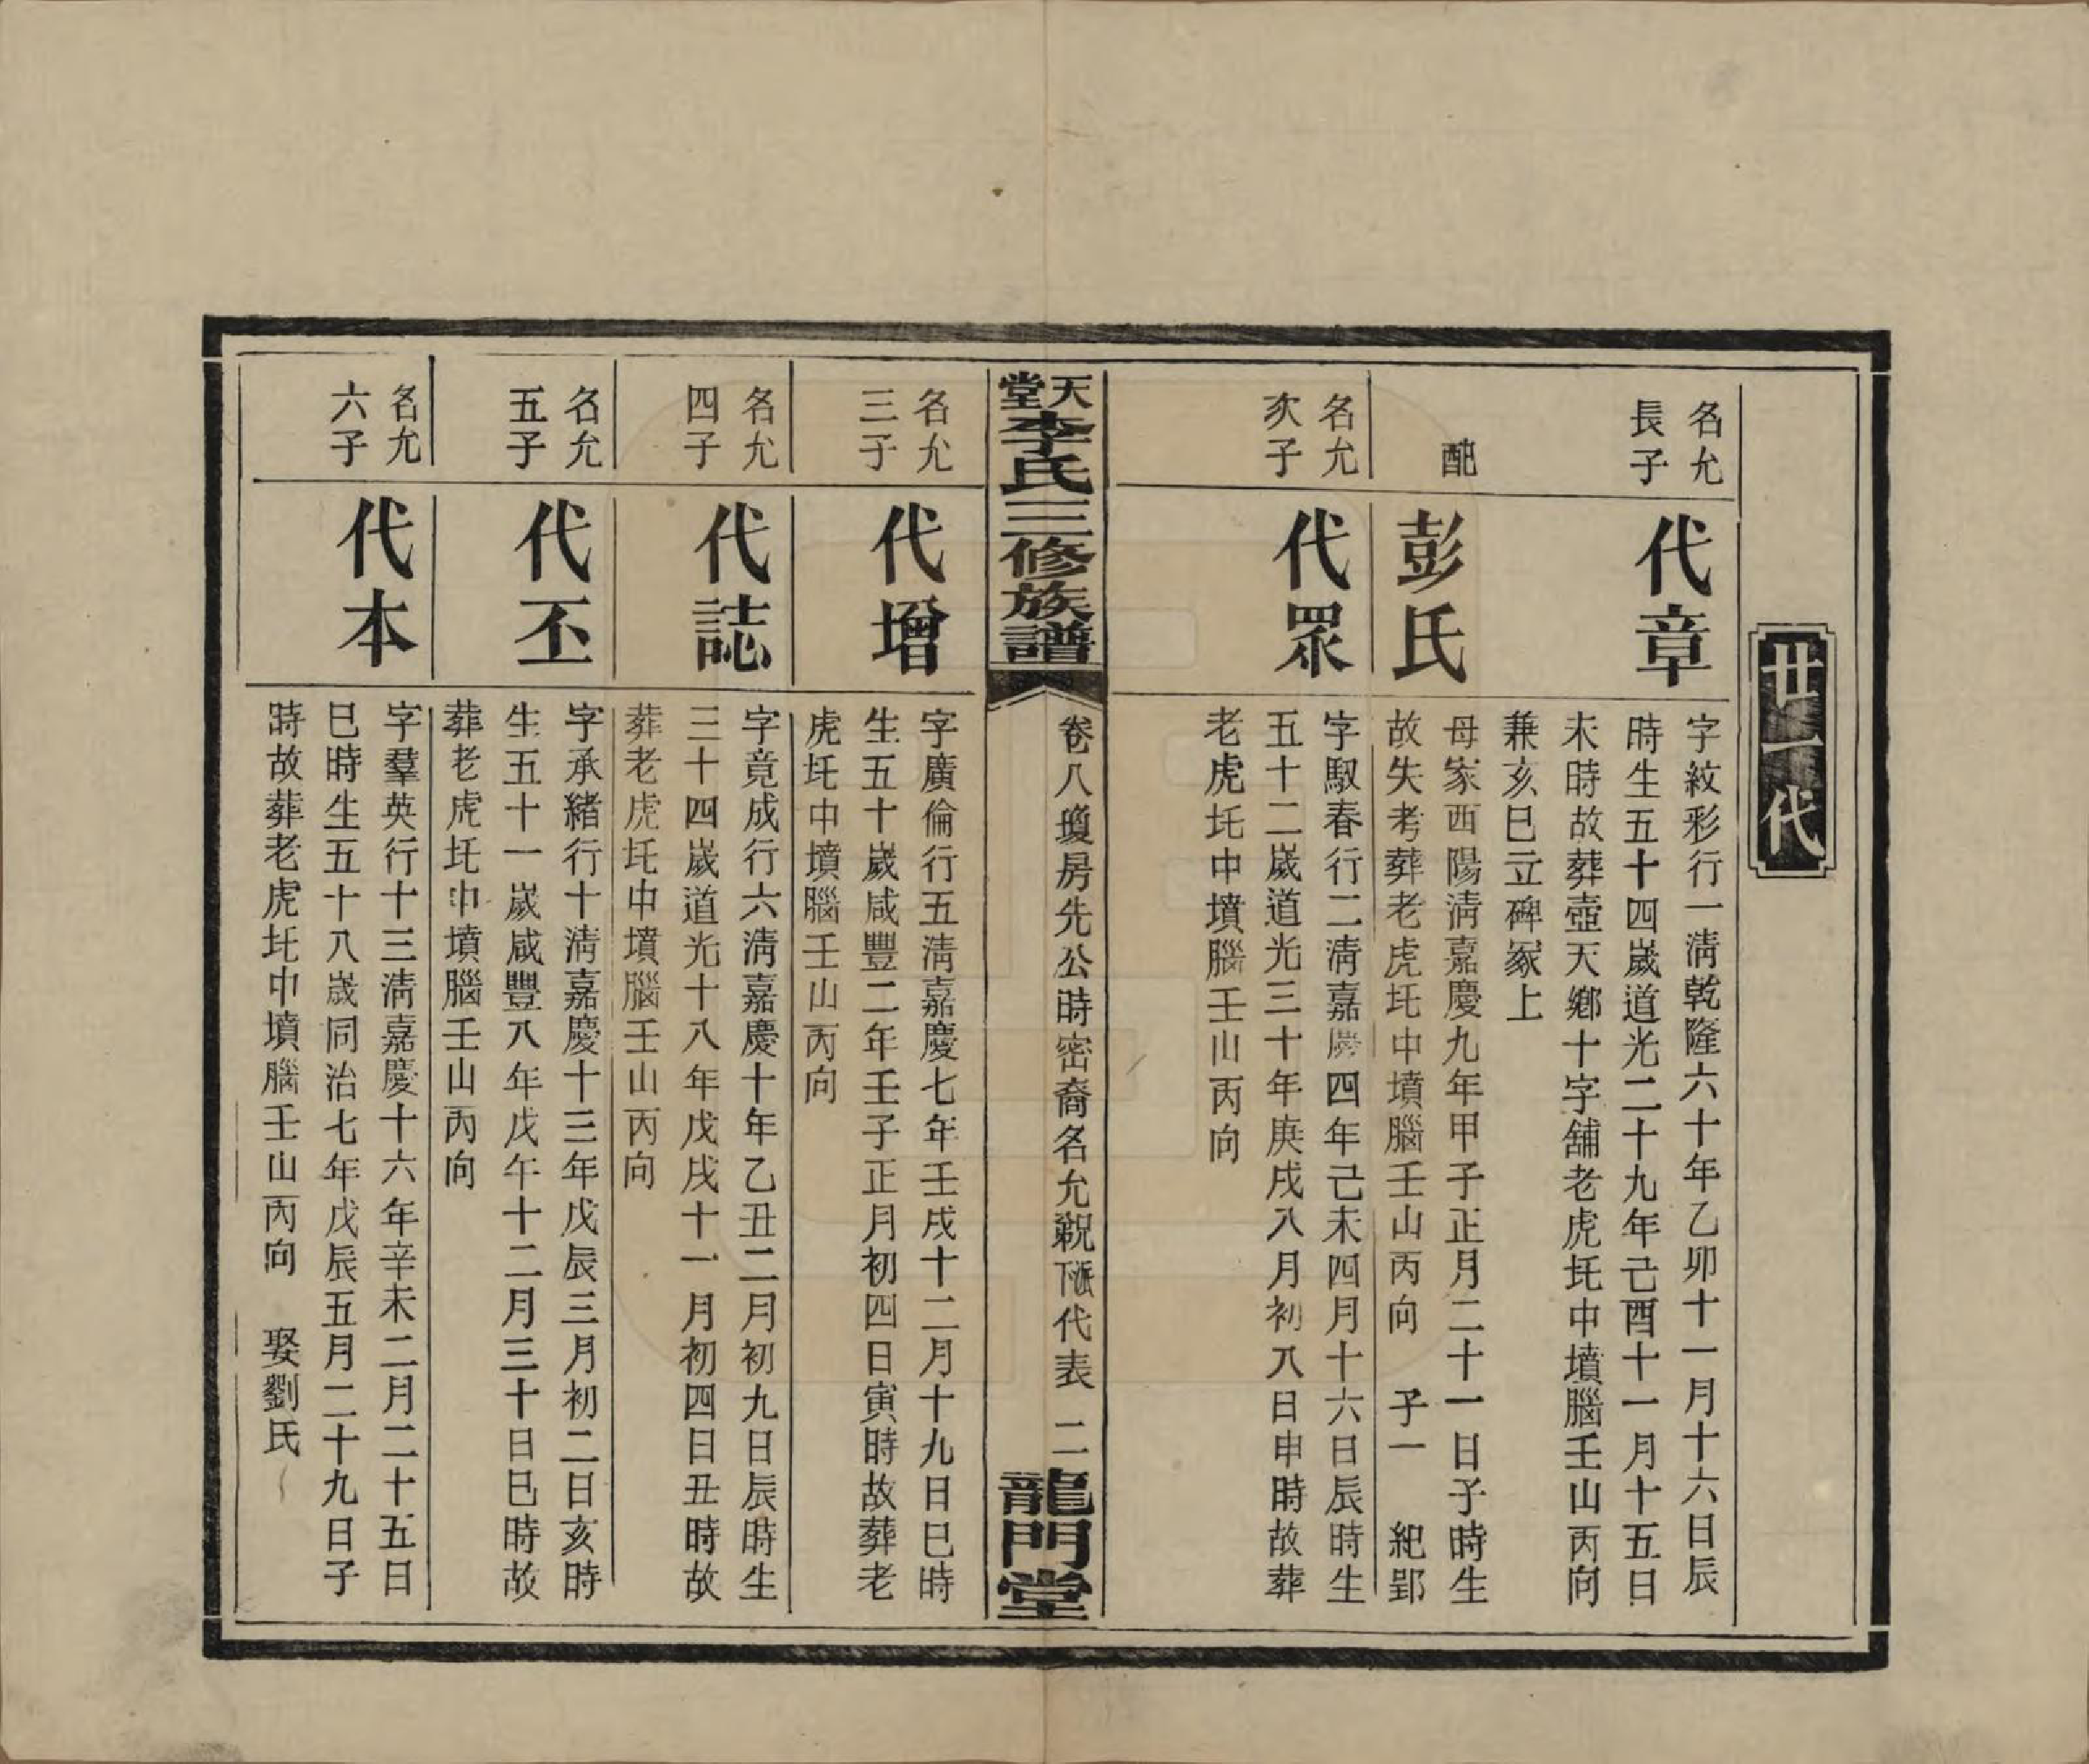 廿一代
名允
長子
代章
字紋彩行一淸乾隆六十年乙卯十一月十六日辰
時生五十四嵗道光二十九年己酉十一月十五日
未時故葬壺天鄉十字舖老虎圫中墳腦壬山丙向
兼亥巳立碑冢上
配
彭氏
母家西陽淸嘉慶九年甲子正月二十一日子時生
故失考葬老虎圫中墳腦壬山丙向 子一 紀郢
名允
次子
代眾
字馭春行二淸嘉慶四年己未四月十六日辰時生
五十二嵗道光三十年庚戌八月初八日申時故葬
老虎圫中墳腦壬山丙向
天堂李氏三修族譜
卷八瓊房先公時密裔名允覾下派代表 二
龍門堂
名允
三子
代增
字廣倫行五淸嘉慶七年壬戌十二月十九日巳時
生五十嵗咸豐二年壬子正月初四日寅時故葬老
虎圫中墳腦壬山丙向
名允
四子
代誌
字竟成行六淸嘉慶十年乙丑二月初九日辰時生
三十四嵗道光十八年戊戌十一月初四日丑時故
葬老虎圫中墳腦壬山丙向
名允
五子
代丕
字承緒行十淸嘉慶十三年戊辰三月初二日亥時
生五十一嵗咸豐八年戊午十二月三十日巳時故
葬老虎圫中墳腦壬山丙向
名允
六子
代本
字羣英行十三淸嘉慶十六年辛未二月二十五日
巳時生五十八嵗同治七年戊辰五月二十九日子
時故葬老虎圫中墳腦壬山丙向 娶劉氏